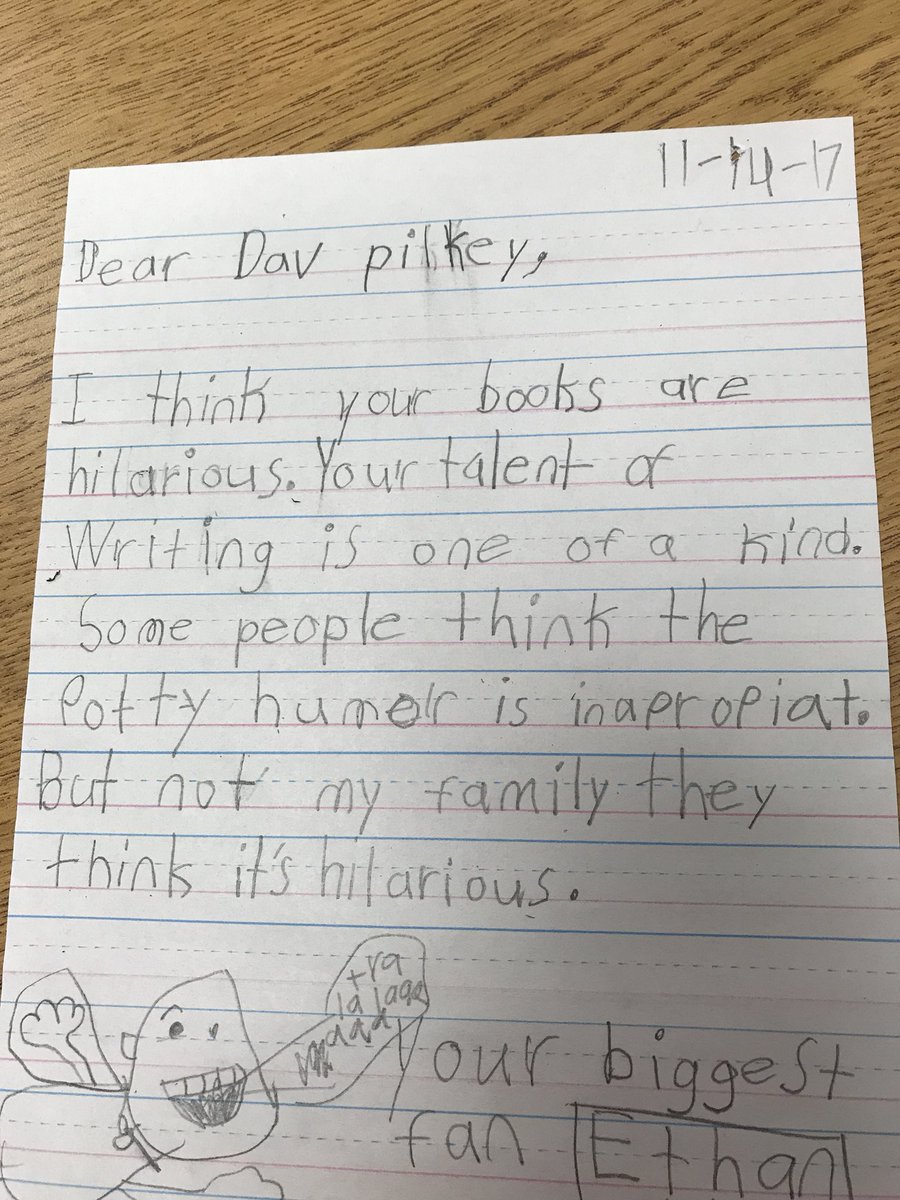 11-14-17
Dear Dav pilkey,
I think your books are
hilarious. Your talent of
Writing is one of a kind.
Some people think the
Potty humor is inapropiat.
But not my family they
think it's hilarious.
tra
la
Your biggest
fan Ethan